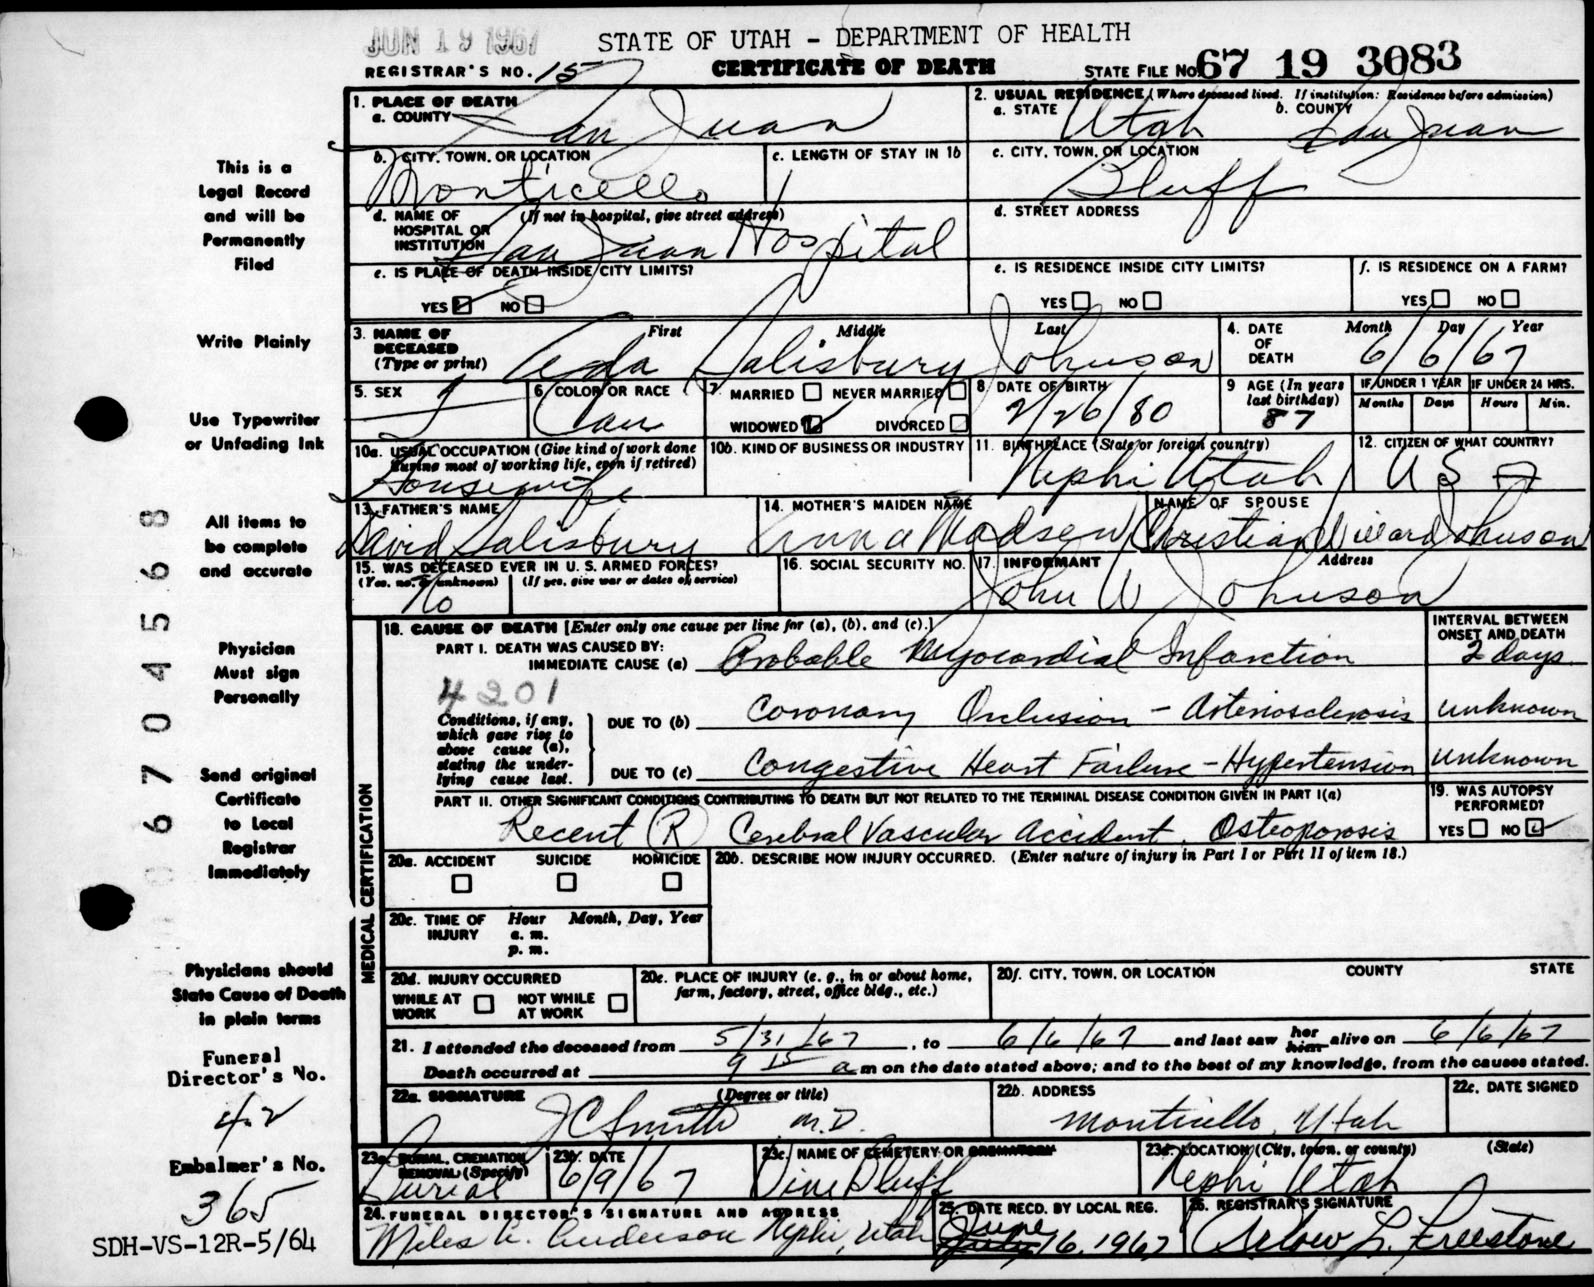 JUN 19 1967
STATE OF UTAH - DEPARTMENT OF HEALTH
REGISTRAR'S NO. 15
CERTIFICATE OF DEATH
STATE FILE NO. 67 19 3083
This is a
Legal Record
and will be
Permanently
Filed
Write Plainly
Use Typewriter
or Unfading Ink
All items to
be complete
and accurate
Physician
Must sign
Personally
Send original
Certificate
to Local
Registrar
Immediately
Physicians should
State Cause of Death
in plain terms
Funeral
Director's No.
42
Embalmer's No.
365
SDH-VS-12R-5/64
067704568
1. PLACE OF DEATH
a. COUNTY San Juan
2. USUAL RESIDENCE (Where deceased lived. If institution: Residence before admission)
a. STATE Utah b. COUNTY San Juan
b. CITY, TOWN, OR LOCATION
Monticello
c. LENGTH OF STAY IN 1b
c. CITY, TOWN, OR LOCATION
Bluff
d. NAME OF HOSPITAL OR INSTITUTION (If not in hospital, give street address)
San Juan Hospital
d. STREET ADDRESS
e. IS PLACE OF DEATH INSIDE CITY LIMITS?
YES NO
e. IS RESIDENCE INSIDE CITY LIMITS?
YES NO
f. IS RESIDENCE ON A FARM?
YES NO
3. NAME OF DECEASED (Type or print)
First Middle Last
Ada Salisbury Johnson
4. DATE OF DEATH
Month Day Year
6/6/67
5. SEX
F
6. COLOR OR RACE
Cau
7. MARRIED NEVER MARRIED
WIDOWED DIVORCED
8. DATE OF BIRTH
2/26/80
9 AGE (In years last birthday)
87
IF UNDER 1 YEAR
Months Days
IF UNDER 24 HRS.
Hours Min.
10a. USUAL OCCUPATION (Give kind of work done during most of working life, even if retired)
Housewife
10b. KIND OF BUSINESS OR INDUSTRY
11. BIRTHPLACE (State or foreign country)
Nephi Utah
12. CITIZEN OF WHAT COUNTRY?
U S
13. FATHER'S NAME
David Salisbury
14. MOTHER'S MAIDEN NAME
Anna Madsen
NAME OF SPOUSE
Christian Willard Johnson
15. WAS DECEASED EVER IN U.S. ARMED FORCES?
(Yes, no, or unknown) (If yes, give war or dates of service)
No
16. SOCIAL SECURITY NO.
17. INFORMANT Address
John W Johnson
MEDICAL CERTIFICATION
18. CAUSE OF DEATH [Enter only one cause per line for (a), (b), and (c).]
INTERVAL BETWEEN ONSET AND DEATH
PART I. DEATH WAS CAUSED BY:
IMMEDIATE CAUSE (a) Probable Myocardial Infarction 2 days
4201
Conditions, if any, which gave rise to above cause (a), stating the underlying cause last.
DUE TO (b) Coronary Occlusion - Arteriosclerosis unknown
DUE TO (c) Congestive Heart Failure - Hypertension unknown
PART II. OTHER SIGNIFICANT CONDITIONS CONTRIBUTING TO DEATH BUT NOT RELATED TO THE TERMINAL DISEASE CONDITION GIVEN IN PART I(a)
Recent (R) Cerebral Vascular Accident. Osteoporosis
19. WAS AUTOPSY PERFORMED?
YES NO
20a. ACCIDENT SUICIDE HOMICIDE
20b. DESCRIBE HOW INJURY OCCURRED. (Enter nature of injury in Part I or Part II of item 18.)
20c. TIME OF INJURY
Hour Month, Day, Year
a. m.
p. m.
20d. INJURY OCCURRED
WHILE AT WORK NOT WHILE AT WORK
20e. PLACE OF INJURY (e. g., in or about home, farm, factory, street, office bldg., etc.)
20f. CITY, TOWN, OR LOCATION COUNTY STATE
21. I attended the deceased from 5/31/67, to 6/6/67 and last saw her him alive on 6/6/67
Death occurred at 9 15 a m on the date stated above; and to the best of my knowledge, from the causes stated.
22a. SIGNATURE (Degree or title)
J C Smith M.D.
22b. ADDRESS
Monticello, Utah
22c. DATE SIGNED
23a. BURIAL, CREMATION REMOVAL (Specify)
Burial
23b. DATE
6/9/67
23c. NAME OF CEMETERY OR CREMATORY
Vine Bluff
23d. LOCATION (City, town, or county) (State)
Nephi Utah
24. FUNERAL DIRECTOR'S SIGNATURE AND ADDRESS
Miles A. Anderson Nephi, Utah
25. DATE RECD. BY LOCAL REG.
June 16, 1967
26. REGISTRAR'S SIGNATURE
Arlow L. Freestone